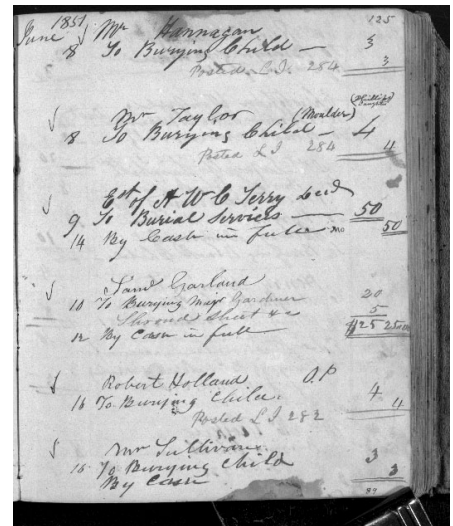 June 1851 Mr Hannagan 125
8 To Burying Child — 3
3
Posted L.J. 284
Mr Taylor (Moulder)
8 To Burying Child — 4
Posted L J 284 4
Est of A W C Terry decd
9 To Burial Services — 50
14 By Cash in full 50
Saml Garland
10 To Burying Mrs Gardner 20
Shroud Sheet &c 5
12 By Cash in full $25 25
Robert Holland O.P
16 To Burying Child 4
Posted L J 282 4
Mr Sullivan
16 To Burying Child 3
By Cash 3
89